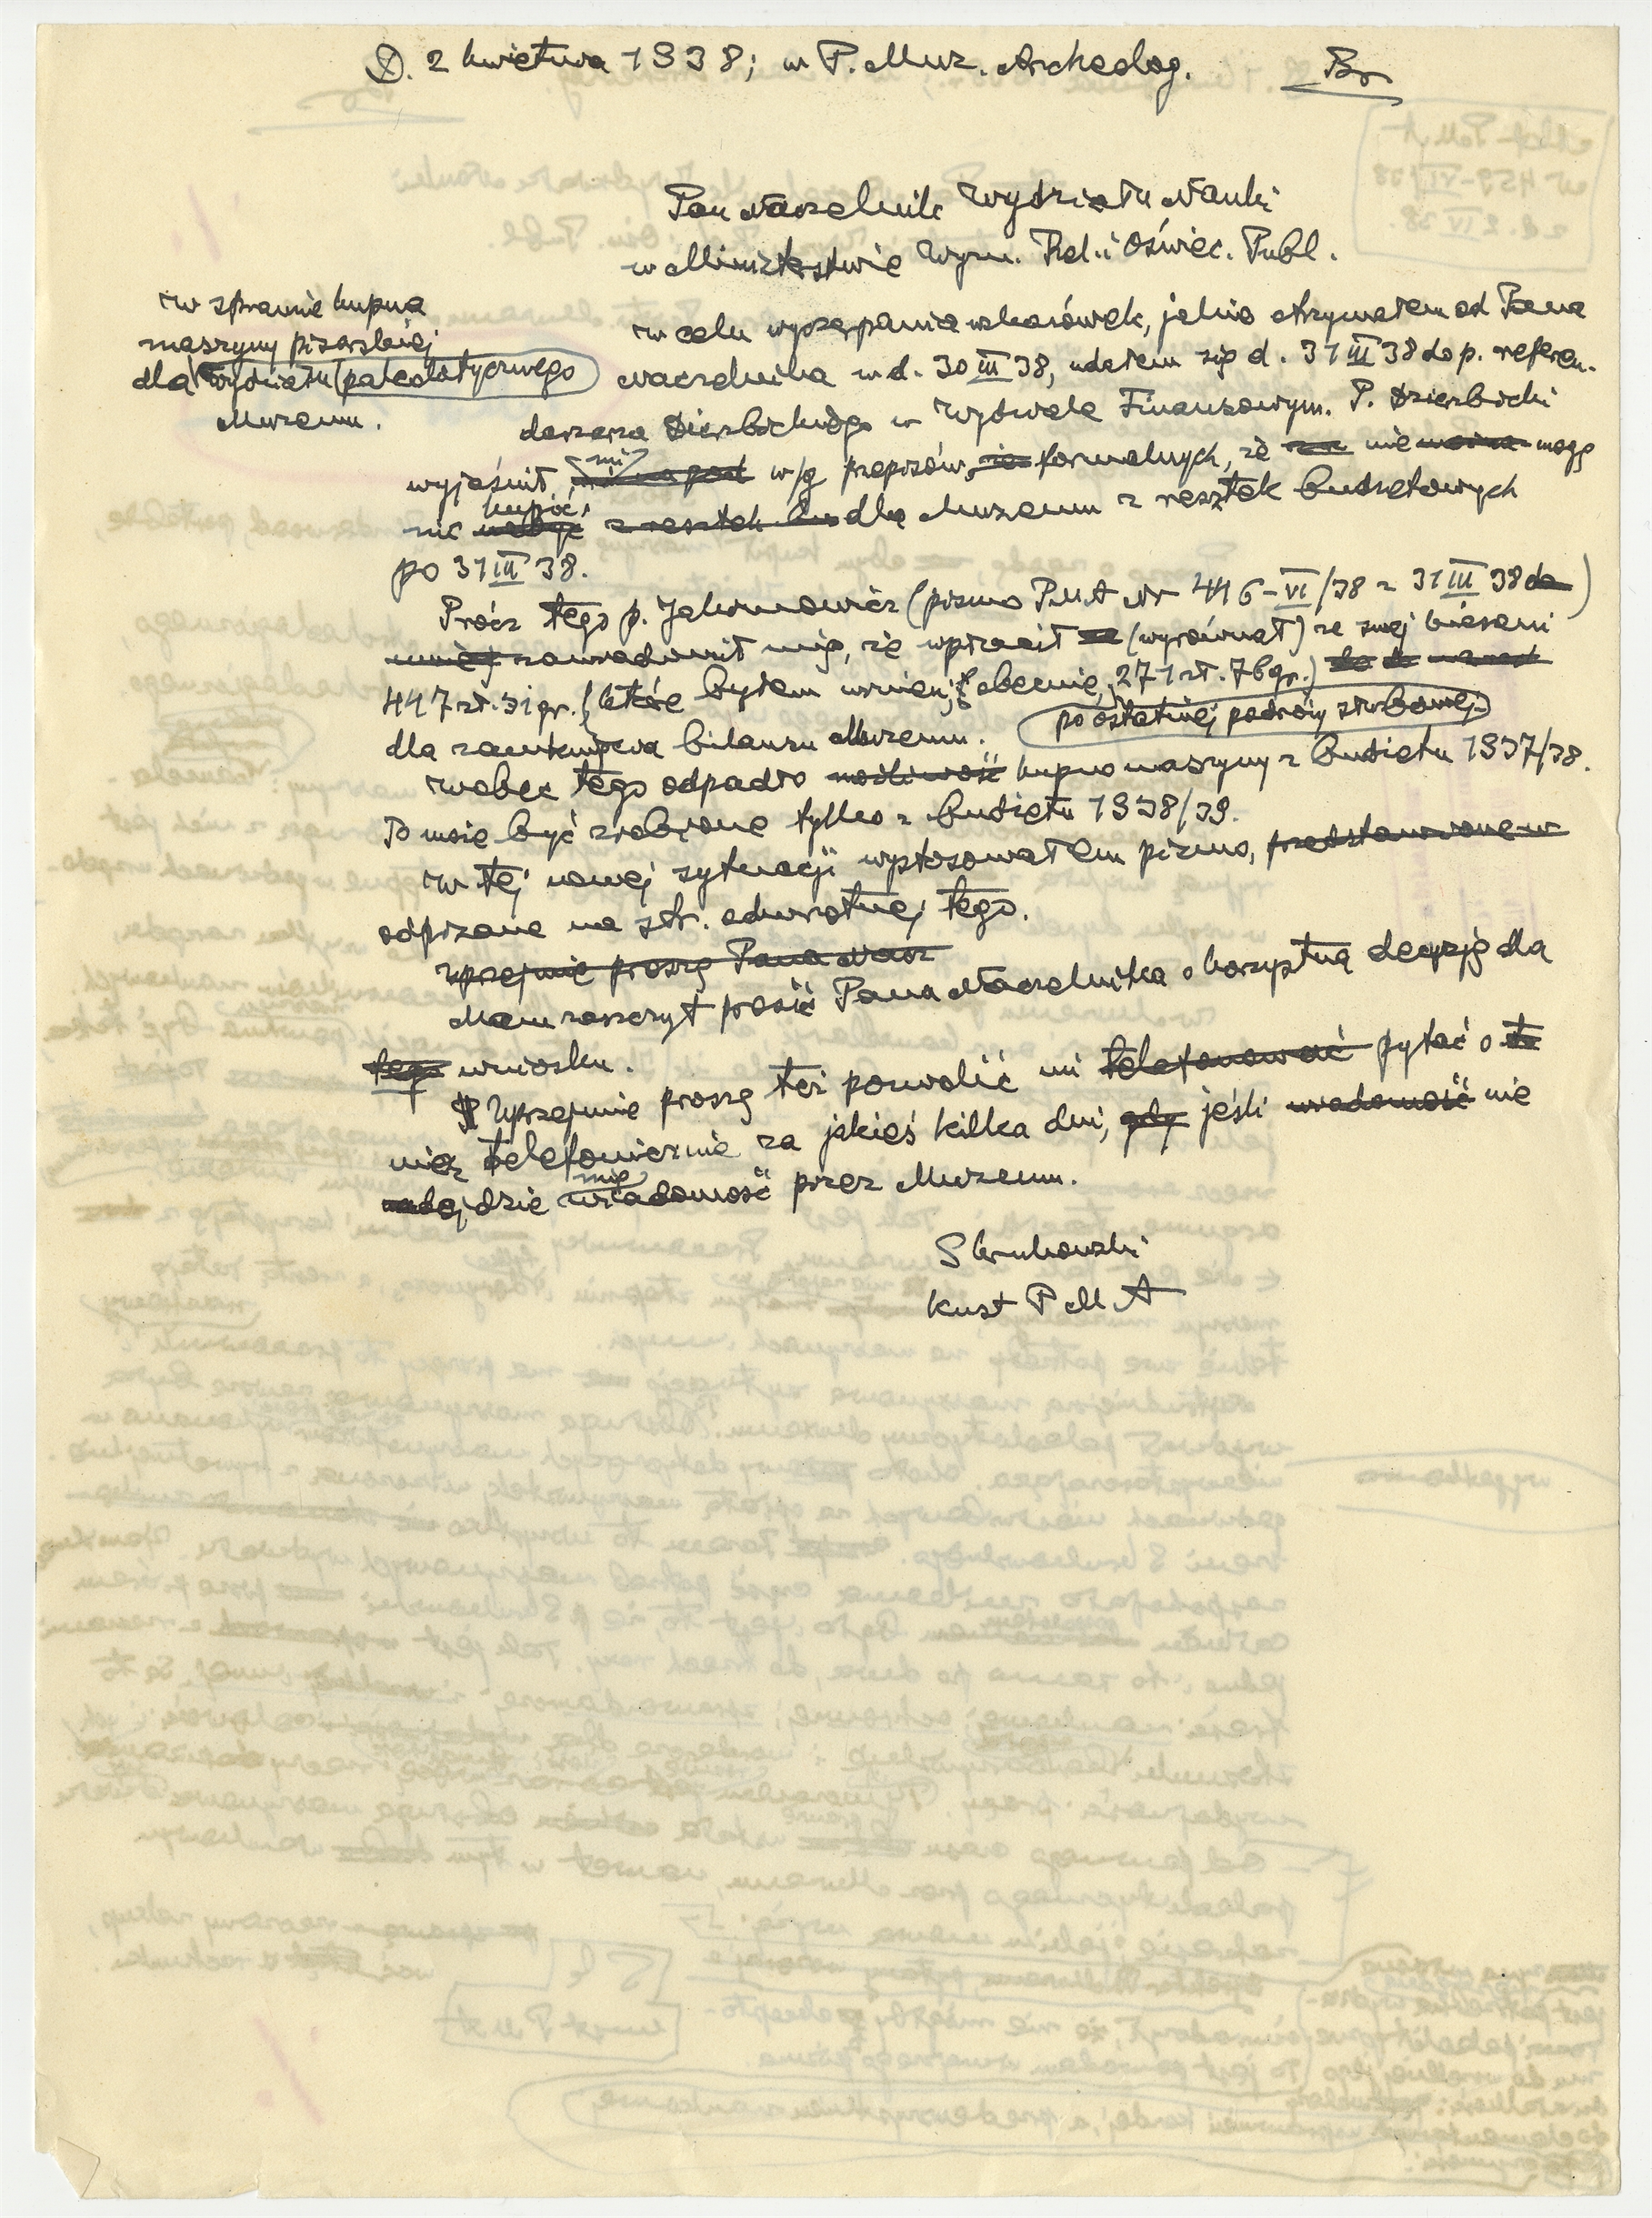 D. 2 kwietnia 1938; w P. Muz. Archeolog. Br
Pan Naczelnik Wydziału Nauki
w Ministerstwie Wyzn. Rel. i Oświec. Publ.
W sprawie kupna
maszyny pisarskiej
dla Wydziału paleolitycznego
Muzeum.
W celu wyczerpania wskazówek, jakie otrzymałem od Pana
Naczelnika w d. 30 III 38, udałem się d. 31 III 38 do p. referen-
darza Dzierbickiego w Wydziale Finansowym. P. Dzierbicki
wyjaśnił mi, w/g przepisów formalnych, że nie mogę
nic kupić, z resztek dla Muzeum z resztek budżetowych
po 31 III 38.
Prócz tego p. Jakimowicz (pismo PMA Nr 446-VI/38 z 31 III 38)
zawiadomił mię, że wpłacił (wyrównał) ze swej kieszeni
447 zł. 31 gr. (które byłem winien; obecnie, 271 zł. 76 gr.)
po ostatniej podróży służbowej
dla zamknięcia bilansu Muzeum.
Wobec tego odpadło możliwość kupno maszyny z budżetu 1937/38.
To może być zrobione tylko z budżetu 1938/39.
W tej nowej sytuacji wystosowałem pismo, przedstawione w
odpisane na str. odwrotnej tego.
Uprzejmie proszę Pana Nacz
Mam zaszczyt prosić Pana Naczelnika o korzystną decyzję dla
tego wniosku.
Uprzejmie proszę też pozwolić mi telefonować pytać o to
niej telefonicznie za jakieś kilka dni, gdy jeśli wiadomość nie
dojdzie mię wiadomość przez Muzeum.
S Krukowski
Kust P M A